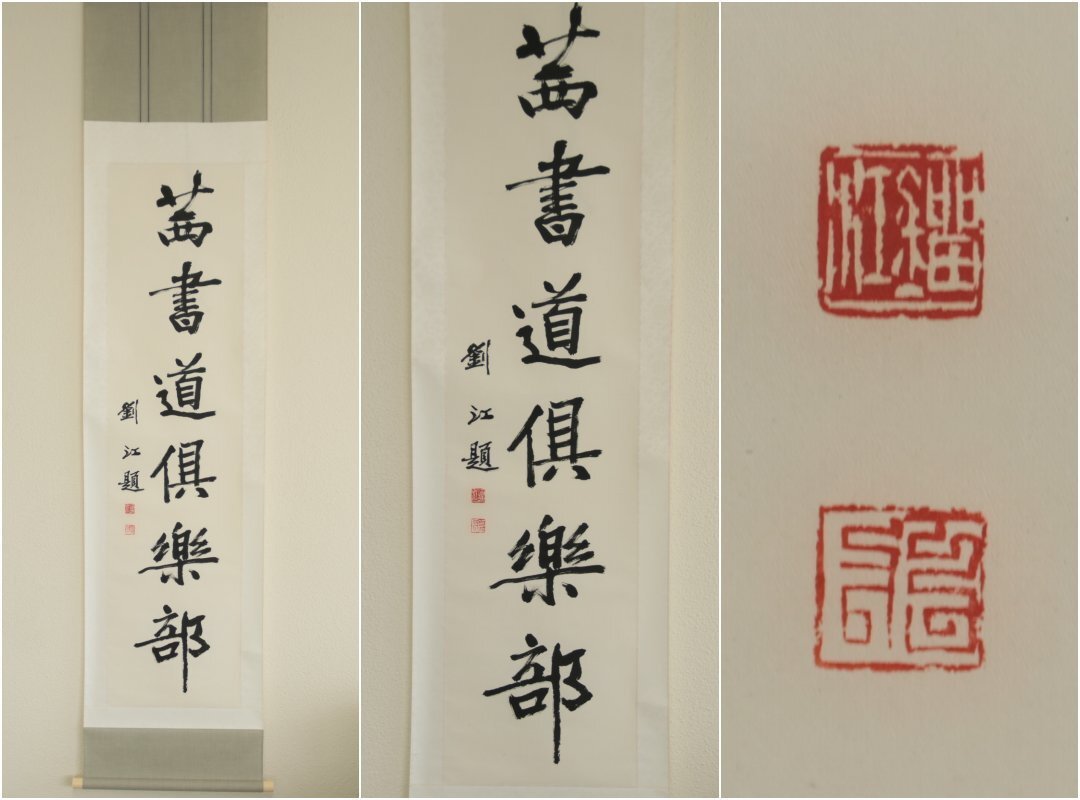 茜書道俱樂部
劉江題
茜書道俱樂部
劉江題